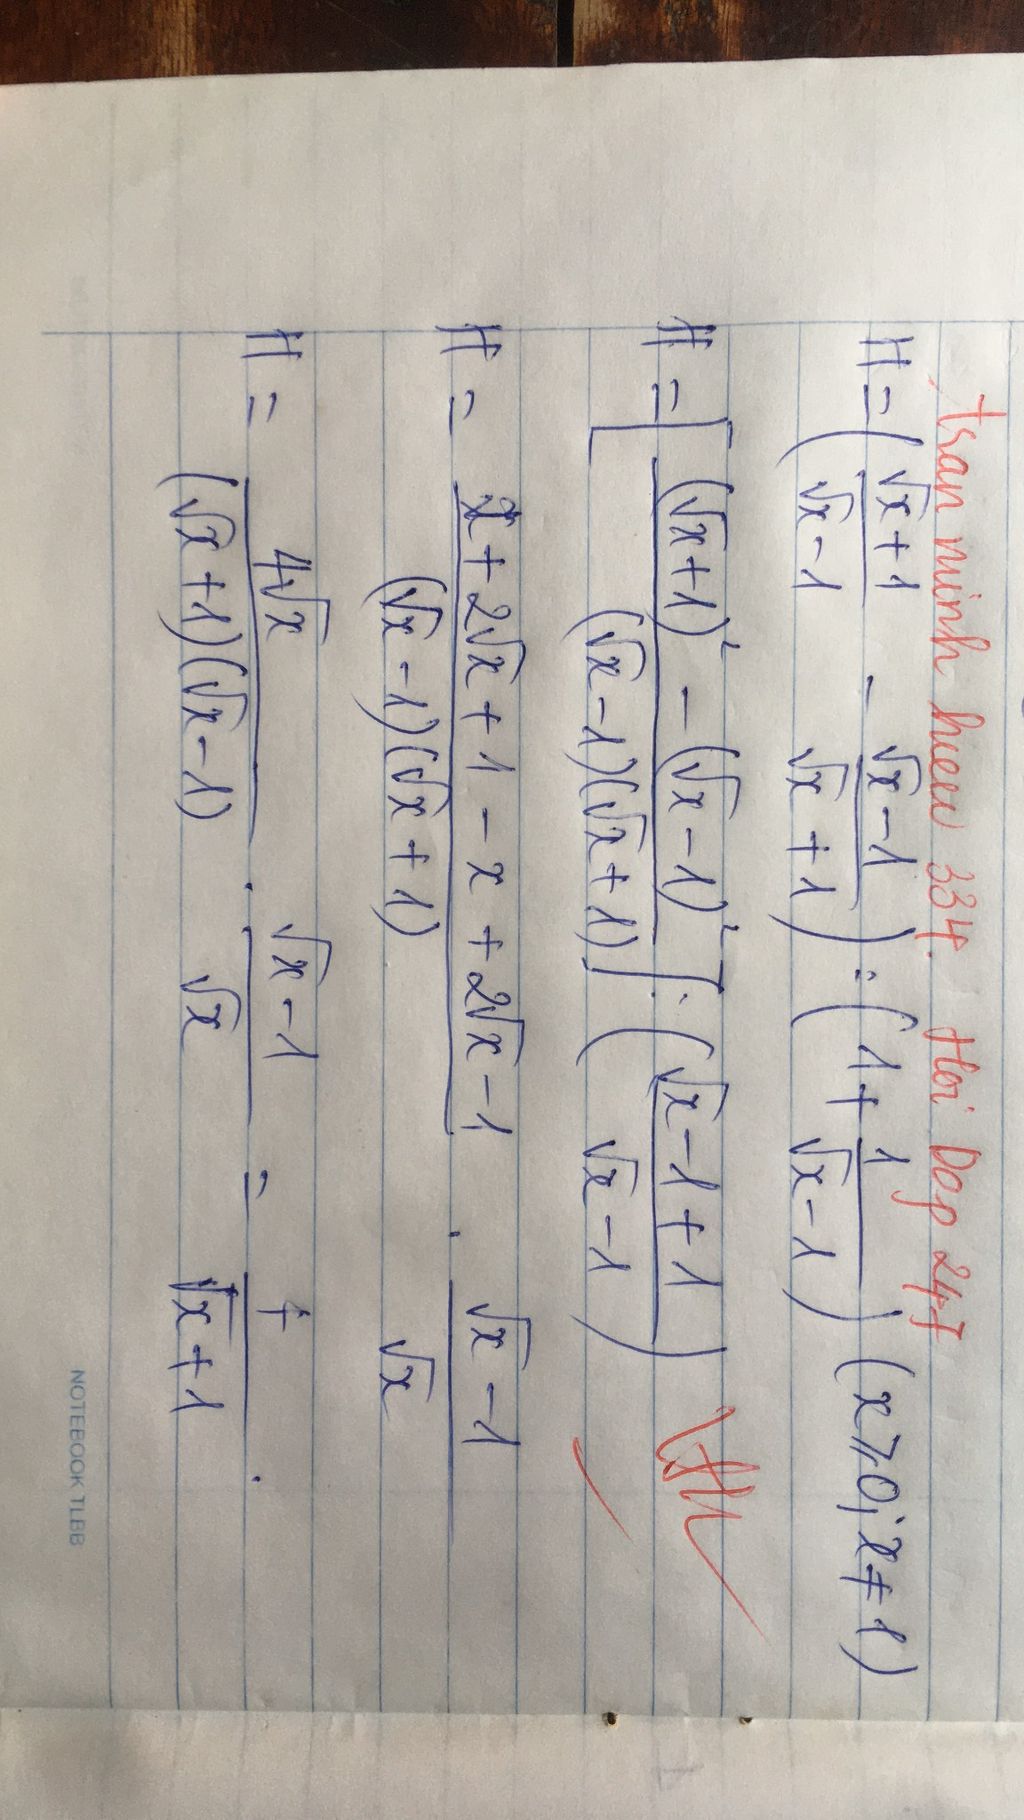 tran minh hieu 334. Hoi Dap 247
H = ( (√x + 1)/(√x - 1) - (√x - 1)/(√x + 1) ) : ( 1 + 1/(√x - 1) ) (x ⩾ 0; x ≠ 1)
H = [ ((√x + 1)² - (√x - 1)²)/((√x - 1)(√x + 1)) ] : ( (√x - 1 + 1)/(√x - 1) )
H = (x + 2√x + 1 - x + 2√x - 1)/((√x - 1)(√x + 1)) . (√x - 1)/√x
H = 4√x/((√x + 1)(√x - 1)) . (√x - 1)/√x = 4/(√x + 1) .
NOTEBOOK TLBB